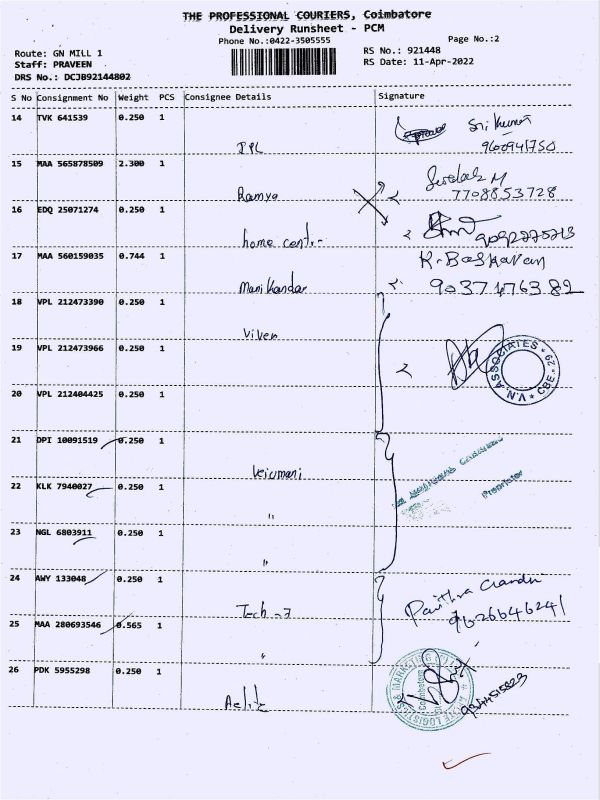 THE PROFESSIONAL COURIERS, Coimbatore
Delivery Runsheet - PCM
Phone No.:0422-3505555
Page No.:2
Route: GN MILL 1
RS No.: 921448
Staff: PRAVEEN
RS Date: 11-Apr-2022
DRS No.: DCJ892144802
S No Consignment No Weight PCS Consignee Details Signature
14 TVK 641539 0.250 1
Sri Kumar
PPL
9600941750
15 MAA 565878509 2.300 1
Ramya
7708853728
16 EDQ 25071274 0.250 1
home cent
17 MAA 560159035 0.744 1
K. Baskaran
Manikandan
9037476382
18 VPL 212473390 0.250 1
Vivek
19 VPL 212473966 0.250 1
V.N. ASSOCIATES * CBE-29 *
20 VPL 212404425 0.250 1
21 DPI 10091519 0.250 1
Velumani
Proprietor
22 KLK 7940027 0.250 1
"
23 NGL 6803911 0.250 1
"
24 AWY 133048 0.250 1
Pavithra
Tech
9626646241
25 MAA 280693546 0.565 1
"
26 PDK 5955298 0.250 1
Aelite
9344515823